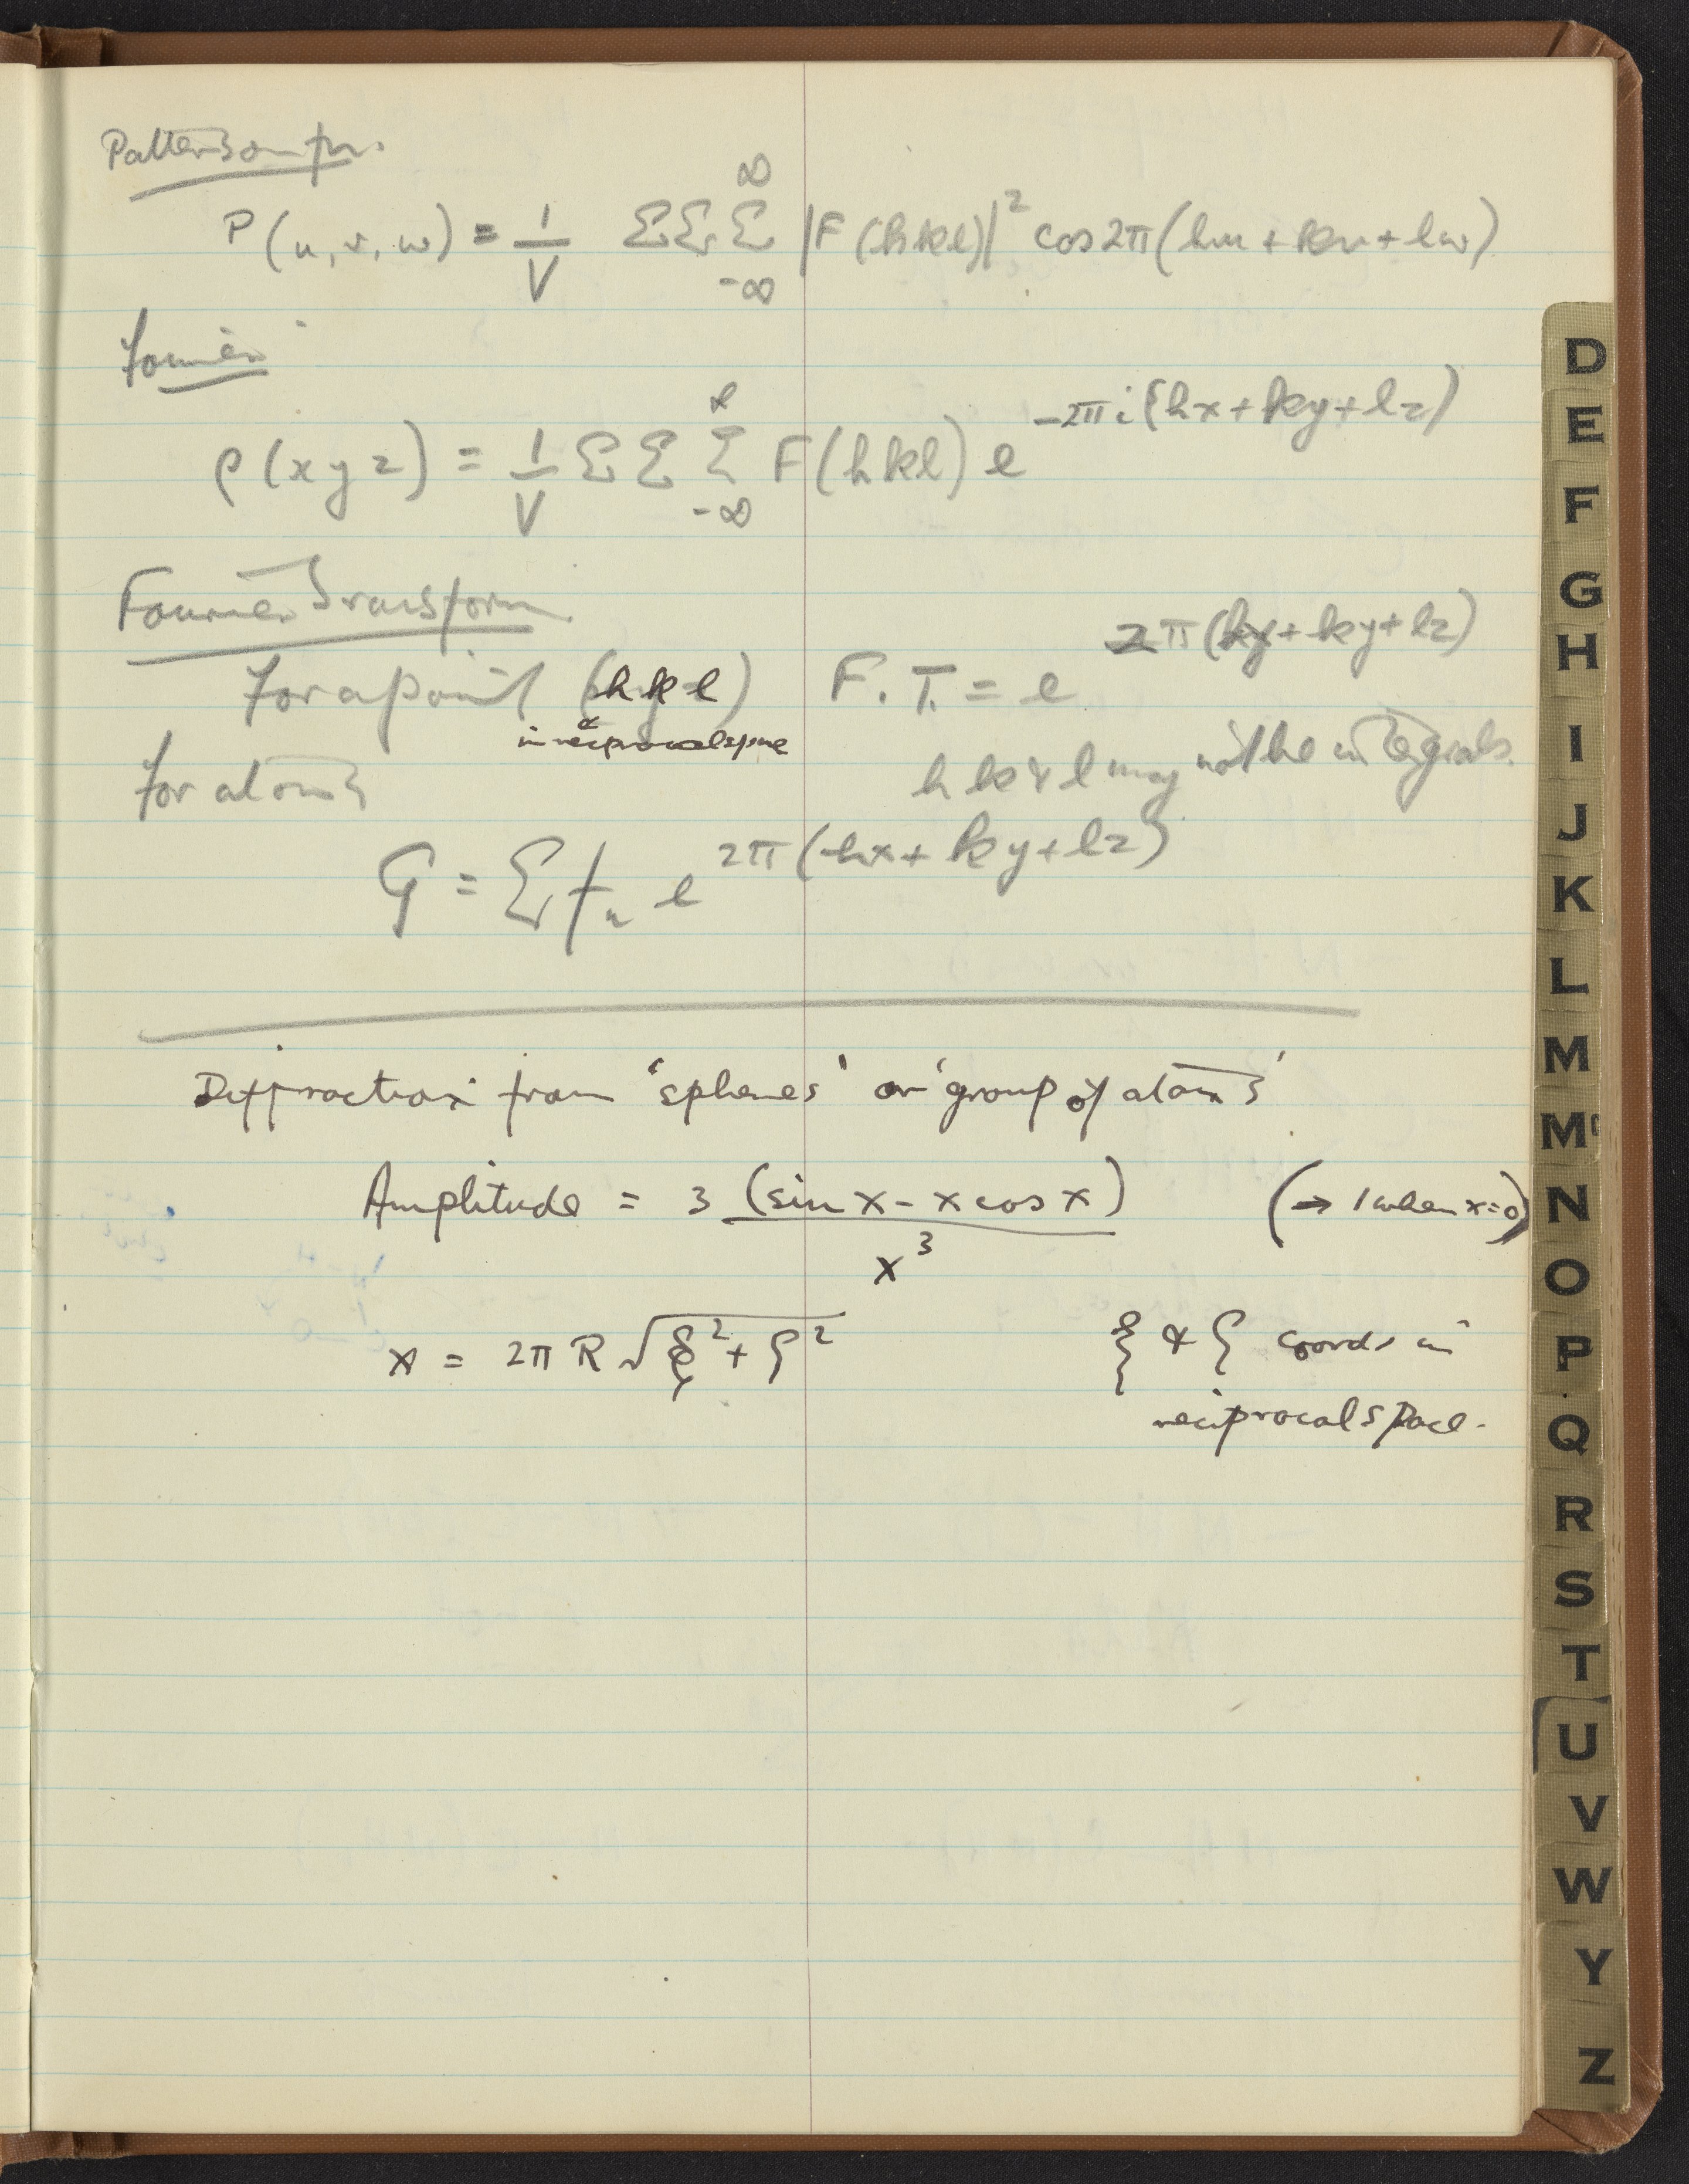 Patterson fn.
P(u,v,w) = 1/V ΣΣΣ_{-∞}^{∞} |F(hkl)|² cos2π(hu+kv+lw)
Fourier
ρ(xyz) = 1/V ΣΣΣ_{-∞}^{∞} F(hkl) e^{-2πi(hx+ky+lz)}
Fourier Transform
For a point (hkl) F.T. = e^{2π(hx+ky+lz)}
in reciprocal space
h k & l may not be integrals.
for atoms
G = Σ f_n e^{2π(hx+ky+lz)}
Diffraction from 'spheres' or 'group of atoms'
Amplitude = 3 (sin x - x cos x) / x³ (→ 1 when x=0)
x = 2π R √(ξ²+ζ²) ξ & ζ coords in
reciprocal space.
D
E
F
G
H
I
J
K
L
M
Mc
N
O
P
Q
R
S
T
U
V
W
Y
Z